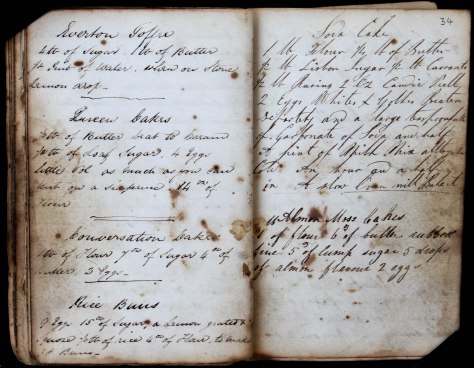 Everton Toffee
of Sugar 1 lb of Butter
of Water. when on Stone
Lemon drop
Queen Cakes
lb of Butter beat to Cream
lb of Loaf Sugar, 4 Eggs
little as much as you can
on a 14 ozs of
Flour
Conversation Cakes
lb of Flour 7 ozs of Sugar 4 ozs of
Butter 2 Eggs
Rice Buns
Eggs 15 ozs of Sugar, a Lemon grated &
lb of rice 4 ozs of Flour, to make
Buns
34
Soda Cake
1 lb Flour lb of Butter
lb Lisbon Sugar lb Currants
lb Raisins 2 Oz Candie Peel
2 Eggs Whites & Yolks Beaten
and a large
of Carbonate of Soda and half
A pint of Milk Mix altogether
An hour and a half
in A slow Oven will Bake it
Cakes
of flour 6 oz of butter rubbed
fine 5 oz of lump sugar 5 drops
of almon flavour 2 eggs